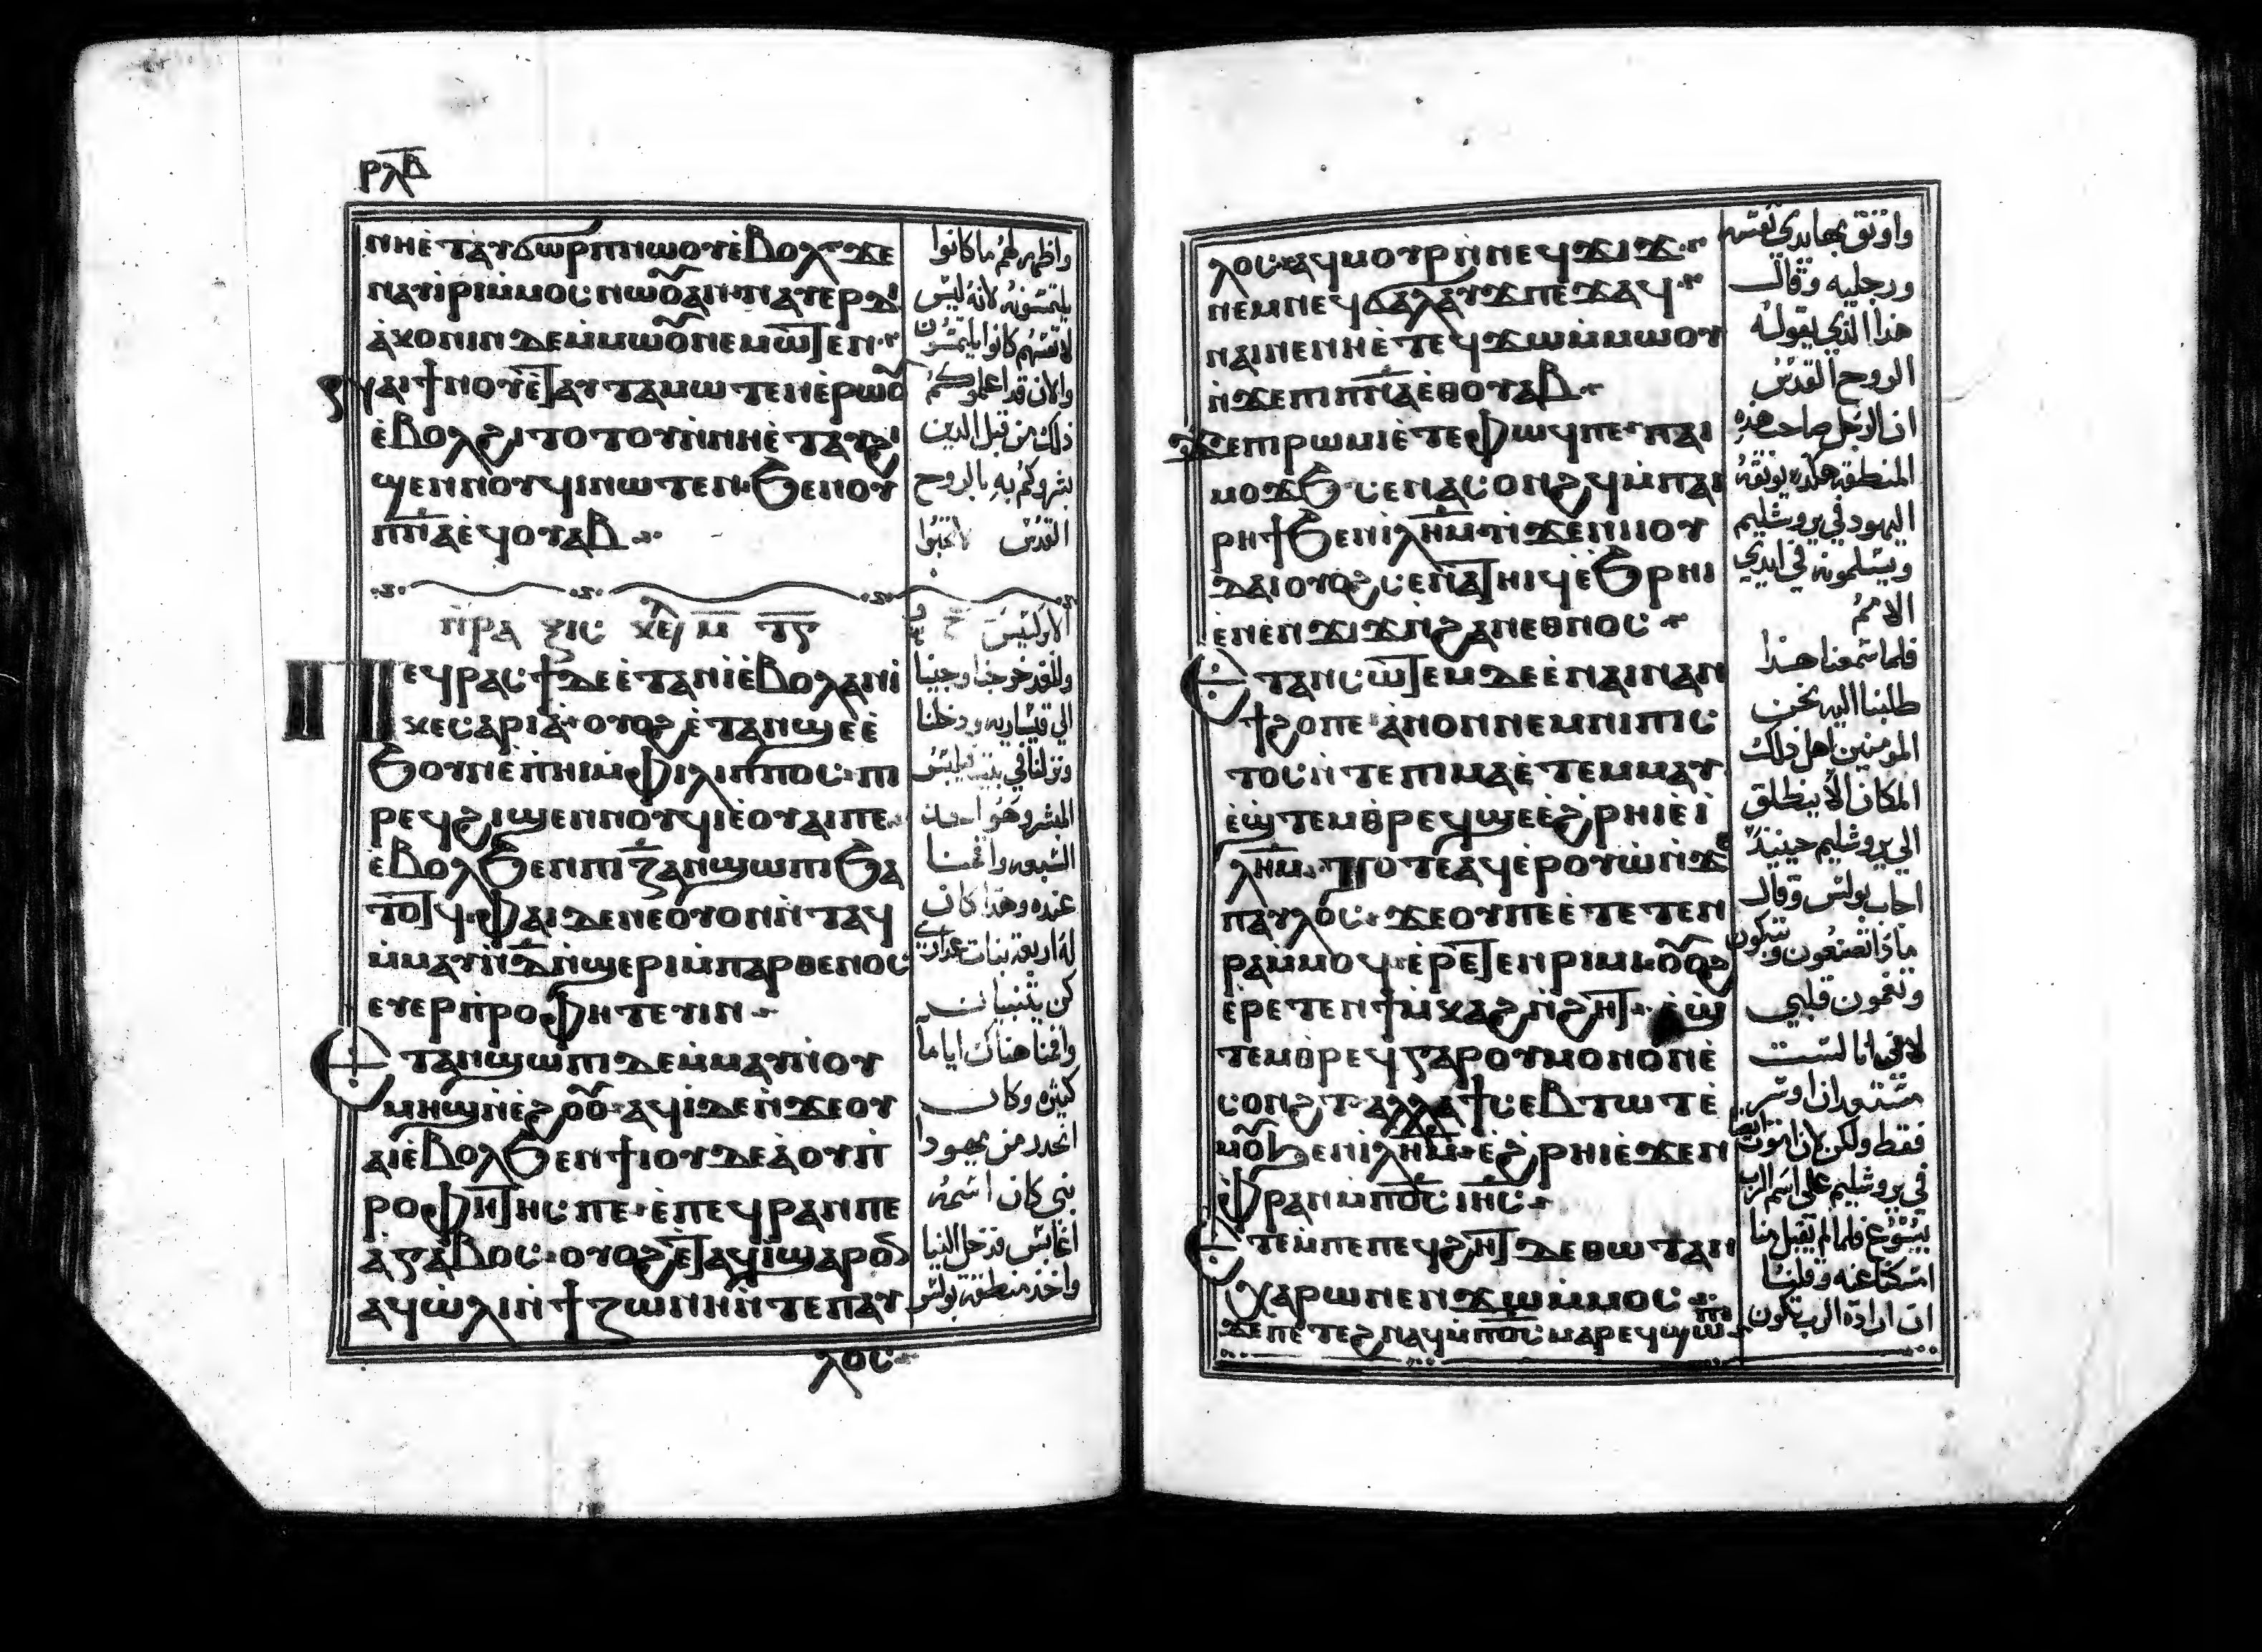 ⲣⲗⲃ
ⲛⲏⲉ̀ⲧⲁⲩϭⲱⲣⲡⲛⲱⲟⲩⲉ̀ⲃⲟⲗ ϫⲉ
ⲛⲁⲩⲓ̀ⲣⲓⲙ̀ⲙⲟⲥⲛⲱⲟⲩⲁⲛ ⲛⲁⲩⲉⲣⲇⲓ
ⲁ̀ⲕⲟⲛⲓⲛ ⲇⲉⲙ̀ⲙⲱⲟⲩⲛⲉⲙⲱⲧⲉⲛ
ⲛⲁⲓϯⲛⲟⲩⲉ̀ⲧⲁⲩⲧⲁⲙⲱⲧⲉⲛⲉ̀ⲣⲱⲟⲩ
ⲉ̀ⲃⲟⲗϩⲓⲧⲟⲧⲟⲩⲛ̀ⲛⲏⲉ̀ⲧⲁⲩϩⲓ
ϣⲉⲛⲛⲟⲩϥⲓⲛⲱⲧⲉⲛ ϧⲉⲛⲟⲩ
ⲡⲛ̅ⲁ̅ⲉϥⲟⲩⲁⲃ
ⲡⲣⲁⲝⲓⲥ ⲕⲉⲫ ⲙ
ⲡⲉϥⲣⲁⲥϯⲇⲉⲉ̀ⲧⲁⲛⲓ̀ⲉ̀ⲃⲟⲗⲁⲛⲓ̀
ⲕⲉⲥⲁⲣⲓⲁ̀ ⲟⲩⲟϩⲉ̀ⲧⲁⲛϣⲉⲉ̀
ϧⲟⲩⲛⲉ̀ⲡⲏⲓⲙ̀ⲫⲓⲗⲓⲡⲡⲟⲥ ⲡⲓ
ⲣⲉϥϩⲓϣⲉⲛⲛⲟⲩϥⲓⲉ̀ⲟⲩⲁⲓⲡⲉ
ⲉ̀ⲃⲟⲗϧⲉⲛⲡⲓⲍ̅ⲁⲛϣⲱⲡⲓϧⲁ
ⲧⲟⲧϥ ⲫⲁⲓⲇⲉⲛⲉⲟⲩⲟⲛⲛ̀ⲧⲁϥ
ⲙ̀ⲙⲁⲩⲛ̀ⲇ̅ⲛ̀ϣⲉⲣⲓⲙ̀ⲡⲁⲣⲑⲉⲛⲟⲥ
ⲉⲩⲉⲣⲡ̀ⲣⲟⲫⲏⲧⲉⲩⲓⲛ
ⲉⲧⲁⲛϣⲱⲡⲓⲇⲉⲙ̀ⲙⲁⲩⲛ̀ⲟⲩ
ⲙⲏϣⲛ̀ⲉ̀ϩⲟⲟⲩ ⲁϥⲓ̀ⲇⲉⲛ̀ϫⲉⲟⲩ
ⲁⲓⲉ̀ⲃⲟⲗϧⲉⲛϯⲓⲟⲩⲇⲉⲁ̀ⲟⲩⲡ̀
ⲣⲟⲫⲏⲧⲏⲥⲡⲉ ⲉ̀ⲡⲉϥⲣⲁⲛⲡⲉ
ⲁ̀ⲅⲁⲃⲟⲥ ⲟⲩⲟϩⲉ̀ⲧⲁϥⲓ̀ϣⲁⲣⲟⲛ
ⲁϥⲱ̀ⲗⲓⲛ̀ϯⲍⲱⲛⲏⲛ̀ⲧⲉⲡⲁⲩ
ⲗⲟⲥ
واظهر لهم ما كانوا
يلتمسونه لانه ليس
لانفسهم كانوا يلتمسون
والان قد اعلموكم
ذلك من قبل الذين
بشروكم به بالروح
القدس
الابركسيس
وللغد خرجنا وجينا
الي قيساريه ودخلنا
ونزلنا في بيت فيلبس
المبشر وهو احد
السبعه واقمنا
عنده وهذا كان
له اربعة بنات عذاري
كن يتنبيان
واقمنا هناك اياما
كثيره وكان
انحدر من يهودا
نبي كان اسمه
اغابس فدخل الينا
واخذ منطقة بولس
ⲗⲟⲥ ⲁϥⲙⲟⲩⲣⲛ̀ⲛⲉϥϫⲓϫ
ⲛⲉⲙⲛⲉϥϭⲁⲗⲁⲩϫⲡⲉϫⲁϥ
ⲛⲁⲓⲛⲉⲛⲏⲉ̀ⲧⲉϥϫⲱⲙ̀ⲙⲱⲟⲩ
ⲛ̀ϫⲉⲡⲓⲡⲛ̅ⲁ̅ⲉⲑⲟⲩⲁⲃ
ϫⲉⲡⲓⲣⲱⲙⲓⲉ̀ⲧⲉⲫⲱϥⲡⲉ ⲡⲁⲓ
ⲙⲟϫϧ ⲥⲉⲛⲁⲥⲟⲛϩϥⲙ̀ⲡⲁⲓ
ⲣⲏϯϧⲉⲛⲓⲗⲏⲙ ⲛ̀ϫⲉⲛⲓⲟⲩ
ⲇⲁⲓⲟⲩⲟϩⲥⲉⲛⲁⲧⲏⲓϥⲉ̀ϧⲣⲏⲓ
ⲉ̀ⲛⲉⲛϫⲓϫⲛ̀ϩⲁⲛⲉⲑⲛⲟⲥ
ⲉⲧⲁⲛⲥⲱⲧⲉⲙⲇⲉⲉ̀ⲛⲁⲓⲛⲁⲛ
ϯϩⲟⲡⲉ ⲁ̀ⲛⲟⲛⲛⲉⲙⲛⲓⲡⲓⲥ
ⲧⲟⲥⲛ̀ⲧⲉⲡⲓⲙⲁⲉ̀ⲧⲉⲙⲙⲁⲩ
ⲉ̀ϣⲧⲉⲙⲑⲣⲉϥϣⲉⲉ̀ϩⲣⲏⲓⲉ̀ⲓ̀
ⲗⲏⲙ ⲧⲟⲧⲉⲁϥⲉ̀ⲣⲟⲩⲱ̀ⲛ̀ϫⲉ
ⲡⲁⲩⲗⲟⲥ ϫⲉⲟⲩⲡⲉⲉ̀ⲧⲉⲧⲉⲛ
ⲣⲁⲙ̀ⲙⲟϥ ⲉ̀ⲣⲉⲧⲉⲛⲣⲓⲙⲓ ⲟⲩⲟϩ
ⲉ̀ⲣⲉⲧⲉⲛϯⲙ̀ⲕⲁϩⲛ̀ϩⲏⲧ ⲉ̀ϣ
ⲧⲉⲙⲑⲣⲉϥⲅⲁⲣⲟⲩⲙⲟⲛⲟⲛⲉ̀
ⲥⲟⲛϩⲧ ⲁⲗⲗⲁϯⲥⲉⲃⲧⲱⲧⲉ̀
ⲙⲟⲩϧⲉⲛⲓⲗⲏⲙ ⲉ̀ϩⲣⲏⲓⲉ̀ϫⲉⲛ
ⲫ̀ⲣⲁⲛⲙ̀ⲡⲟ̅ⲥ̅ ⲓⲏ̅ⲥ̅
ⲉⲧⲉⲙ̀ⲡⲉⲡⲉϥϩⲏⲧⲇⲉⲑⲱⲧⲁⲛ
ⲭⲁⲣⲱⲛⲉⲛϫⲱⲙ̀ⲙⲟⲥ
ϫⲉⲡⲉⲧⲉϩⲛⲁϥⲙ̀ⲡⲟ̅ⲥ̅ ⲙⲁⲣⲉϥϣⲱⲡⲓ
واوثق بها يدي نفسه
ورجليه وقال
هذا الذي يقوله
الروح القدس
ان الرجل صاحب هذه
المنطقه هكذا يوثقه
اليهود في يروشليم
ويسلمونه في ايدي
الامم
فلما سمعنا هذا
طلبنا اليه نحن
المومنين اهل ذلك
المكان الا ينطلق
الي يروشليم حينيذ
اجاب بولس وقال
ماذا تصنعون تبكون
وتغمون قلبي
لاني انا لست
مستعد ان اوسر
فقط ولكن لان اموت ايضا
في يروشليم علي اسم الرب
يسوع فلما لم يقبل منا
امسكنا عنه وقلنا
ان ارادة الرب تكون